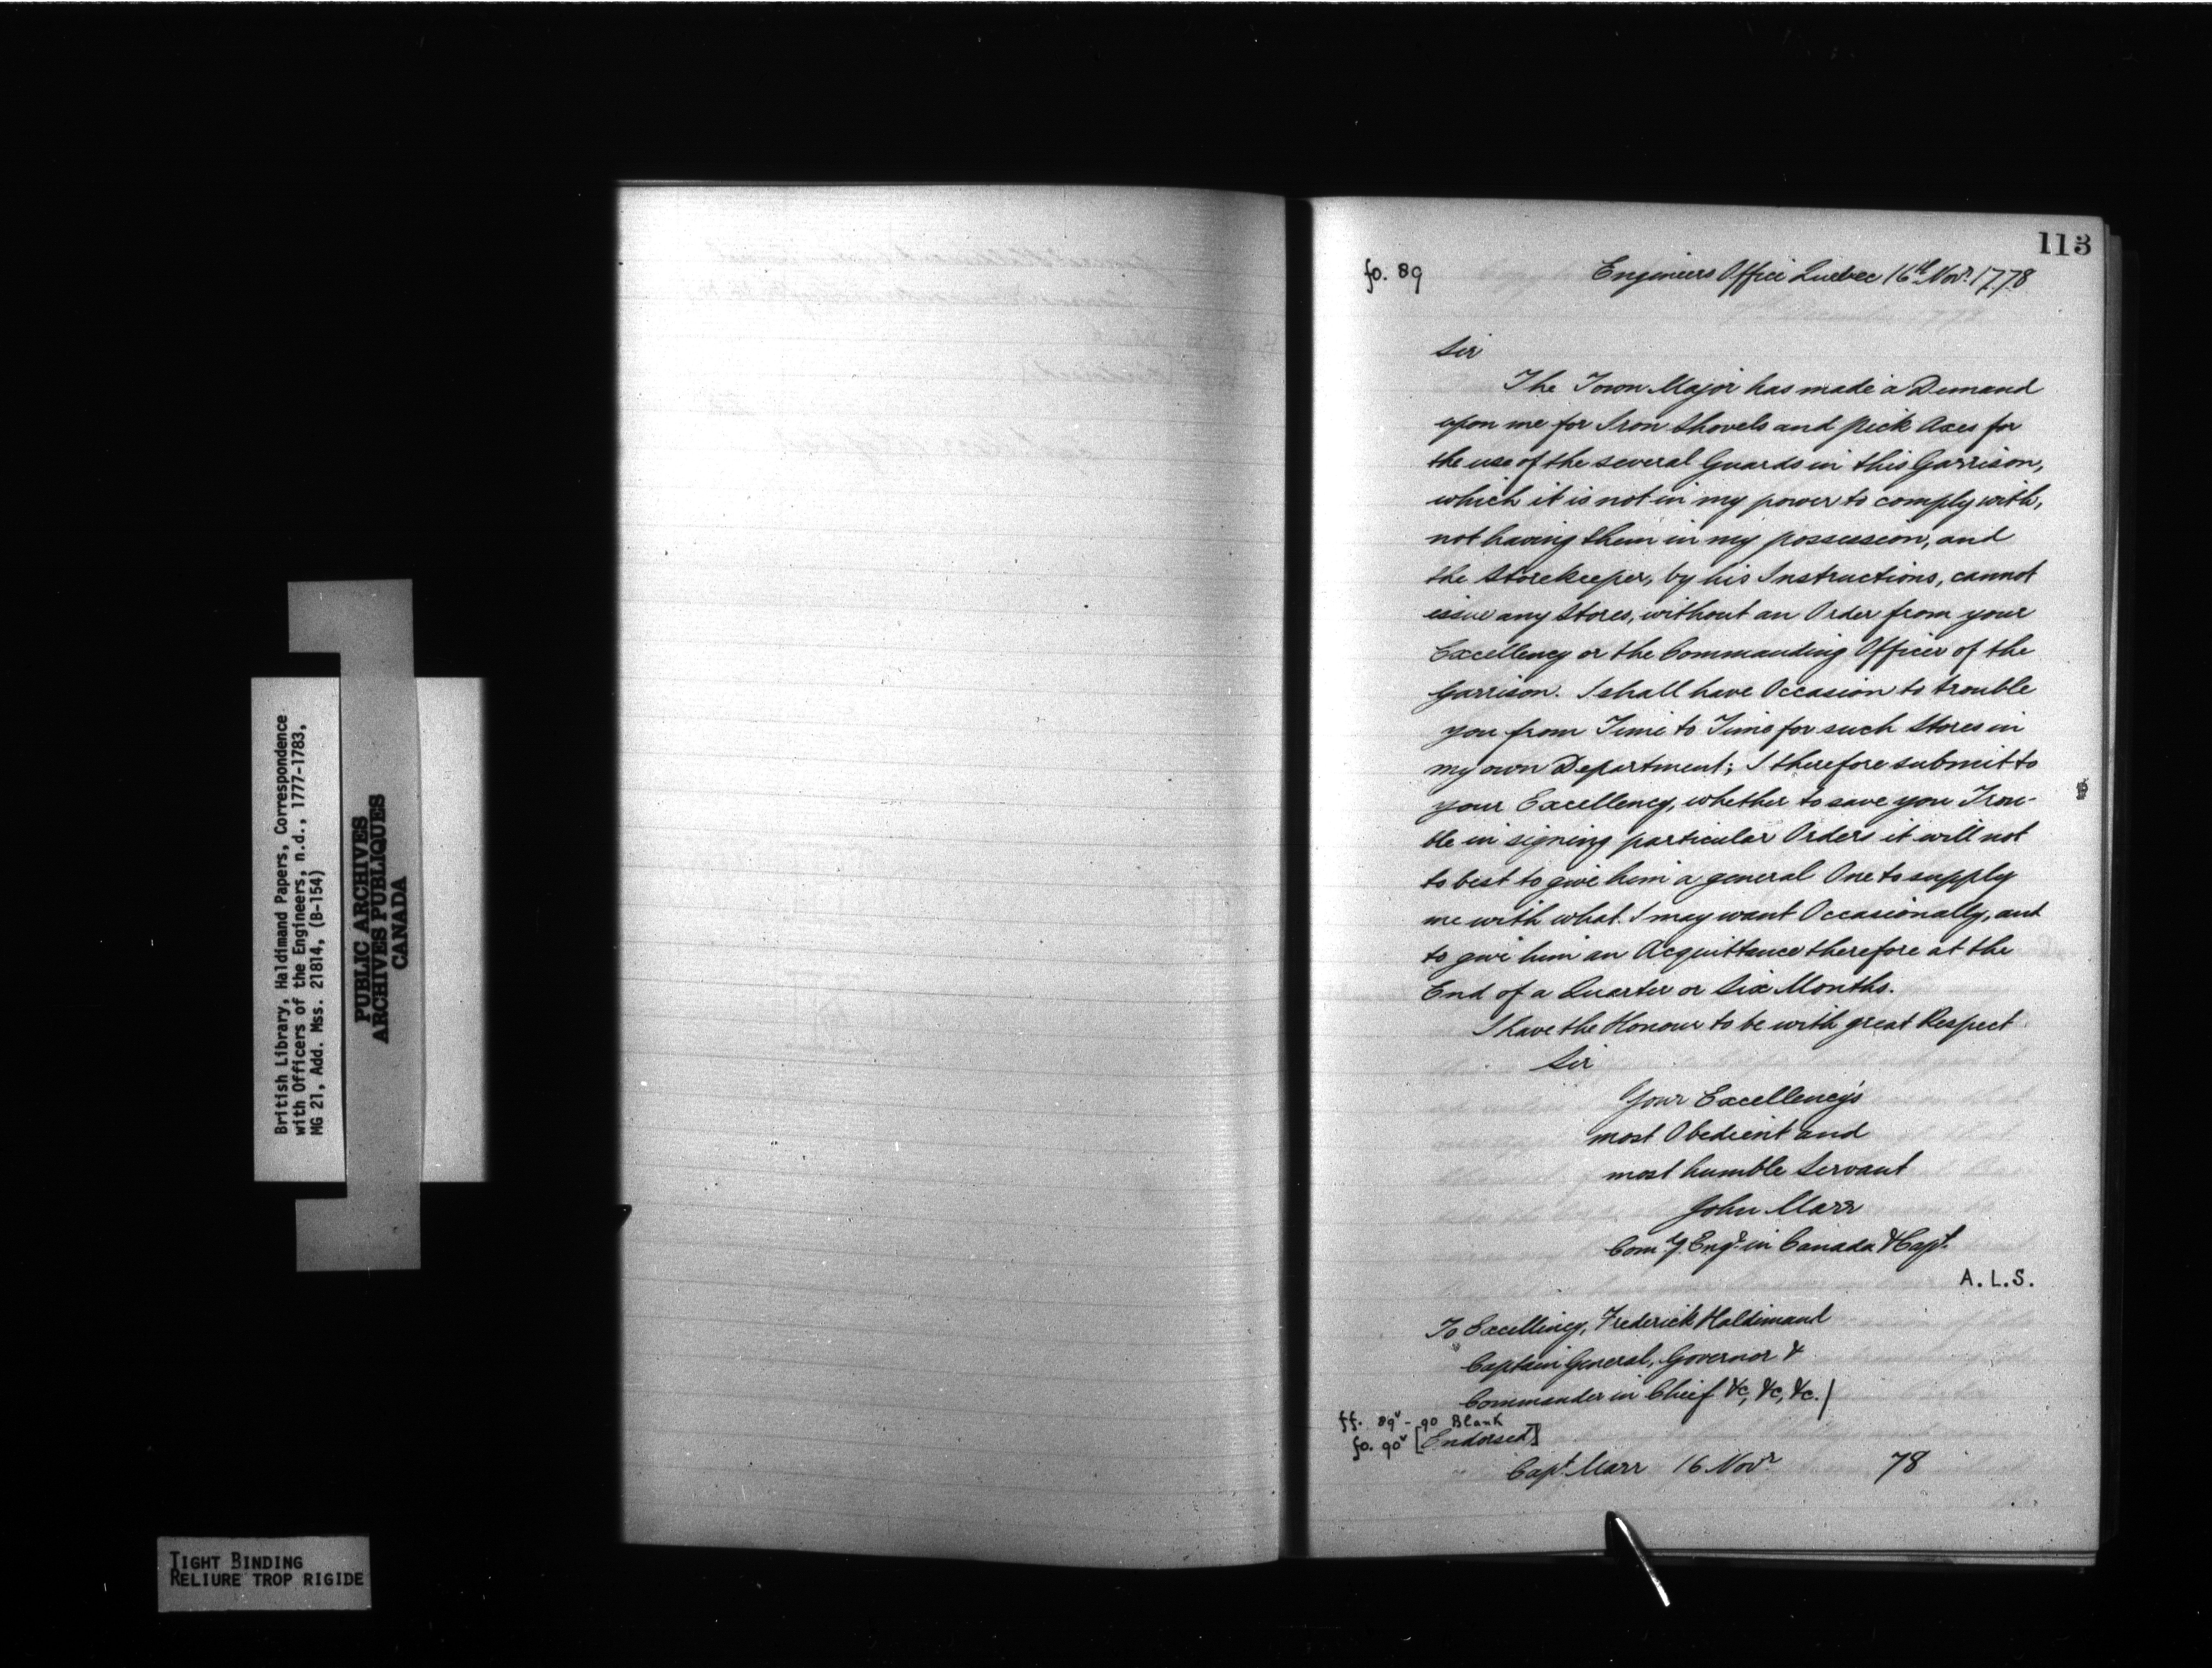 British Library, Haldimand Papers, Correspondence
with Officers of the Engineers, n.d., 1777-1783,
MG 21, Add. Mss. 21814, (B-154)
PUBLIC ARCHIVES
ARCHIVES PUBLIQUES
CANADA
TIGHT BINDING
RELIURE TROP RIGIDE
113
fo. 89
Engineers Office Quebec 16th Novr. 1778
Sir
The Town Major has made a Demand
upon me for Iron Shovels and Pick Axes for
the use of the several Guards in this Garrison,
which it is not in my power to comply with,
not having them in my possession, and
the Storekeeper, by his Instructions, cannot
issue any Stores, without an Order from your
Excellency or the Commanding Officer of the
Garrison. I shall have Occasion to trouble
you from Time to Time for such Stores in
my own Department; I therefore submit to
your Excellency, whether to save you Trou-
ble in signing particular Orders it will not
to best to give him a general One to supply
me with what I may want Occasionally, and
to give him an Acquittance therefore at the
End of a Quarter or Six Months.
I have the Honour to be with great Respect
Sir
Your Excellency's
most Obedient and
most humble Servant
John Marr
Comg. Engr. in Canada & Capt.
A.L.S.
To Excellency, Frederick Haldimand
Captain General, Governor &
Commander in Chief &c, &c, &c./
ff. 89v - 90 Blank
fo. 90v [Endorsed]
Capt. Marr 16 Novr 78